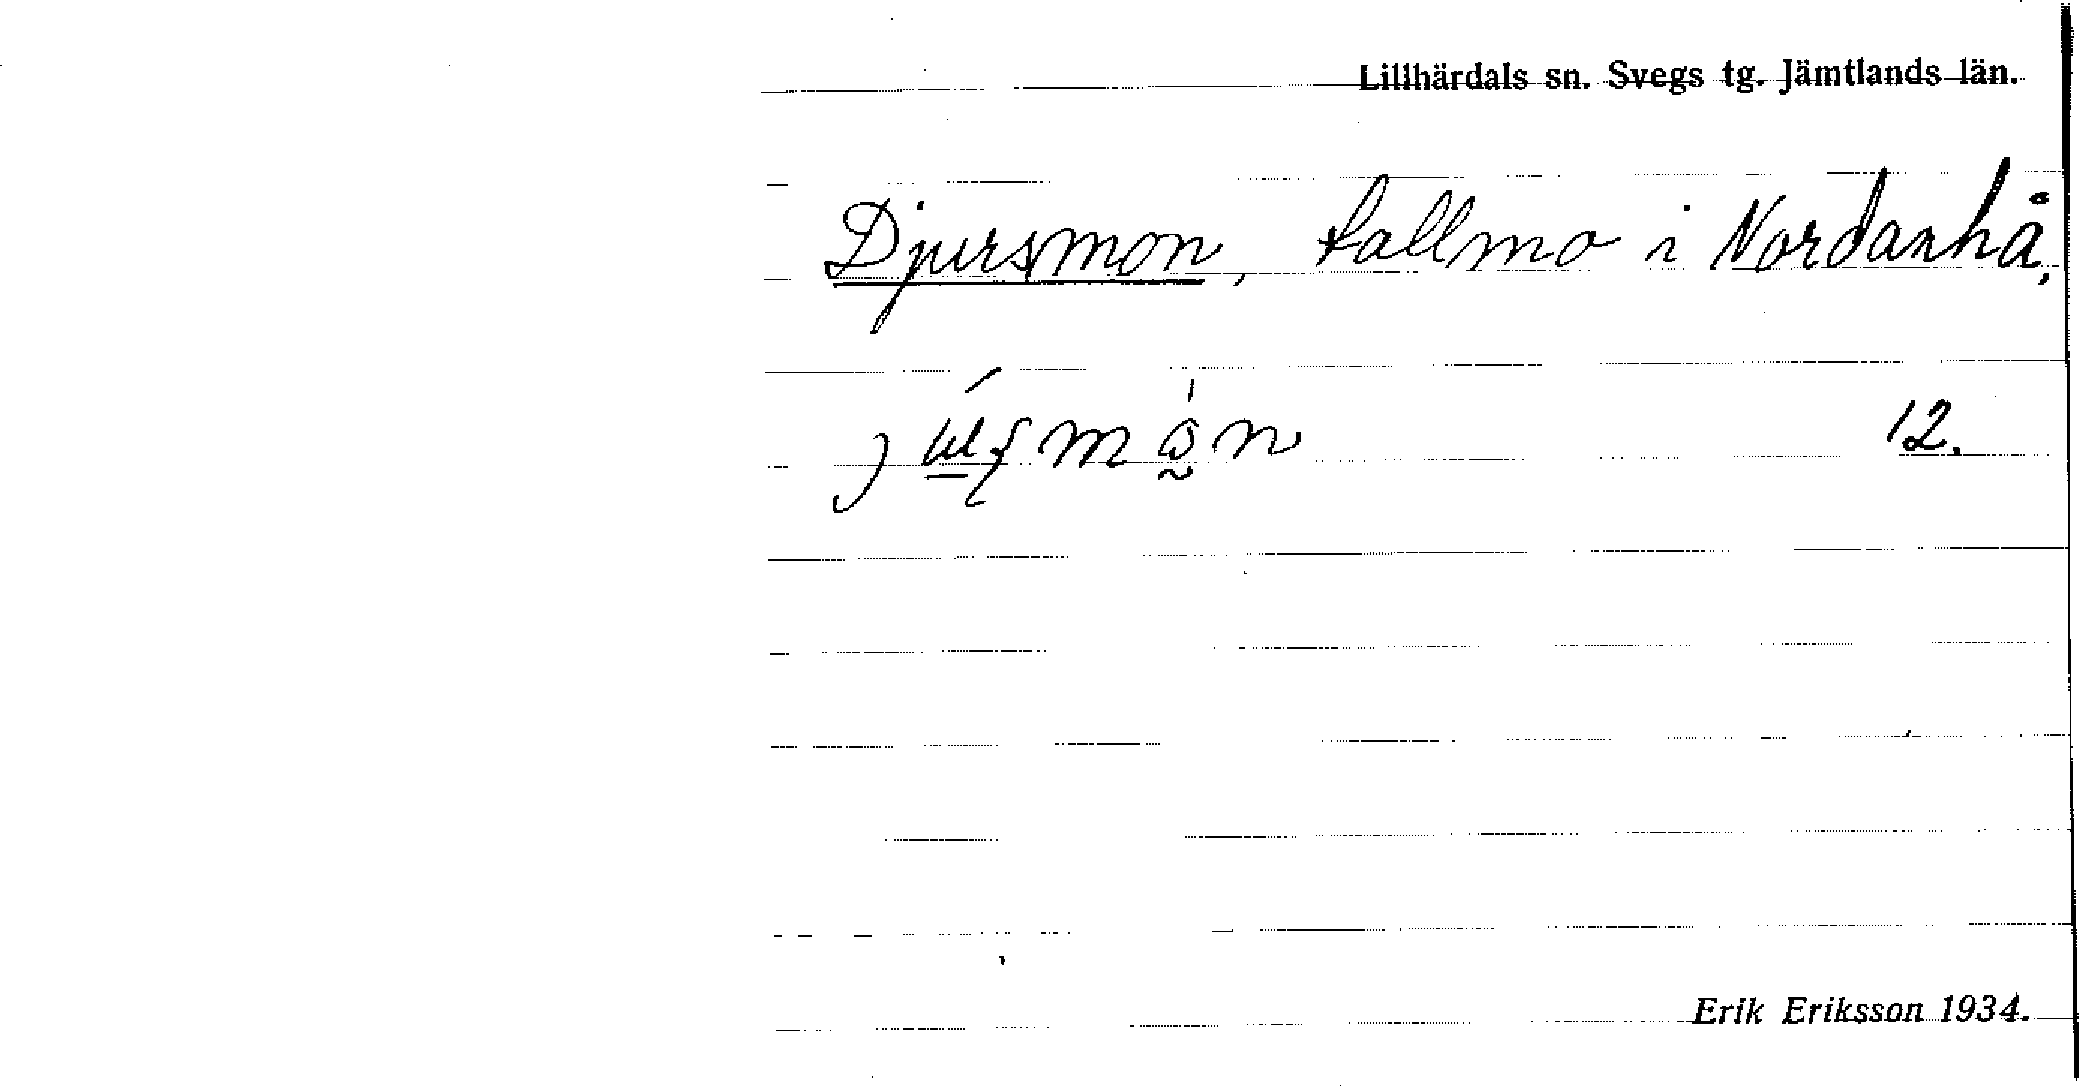 Lillhärdals sn. Svegs tg. Jämtlands län.
Djursmon, tallmo i Nordanhå,
12.
Erik Eriksson 1934.